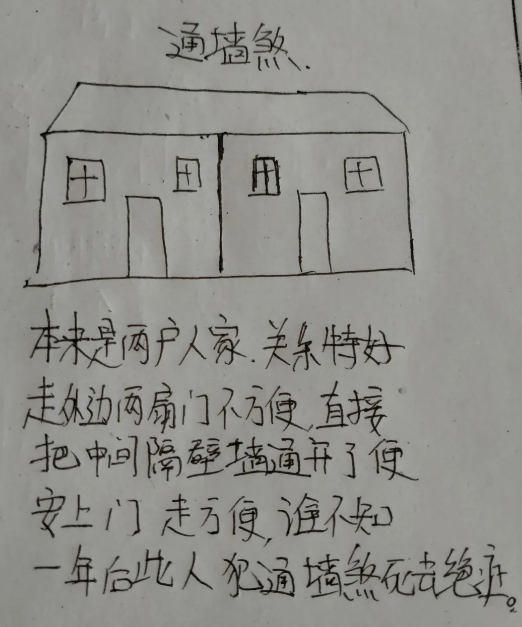 通墙煞.
本来是两户人家.关系特好
走外边两扇门不方便,直接
把中间隔壁墙通开了便
安上门走方便,谁不知
一年后此人犯通墙煞死去绝症。